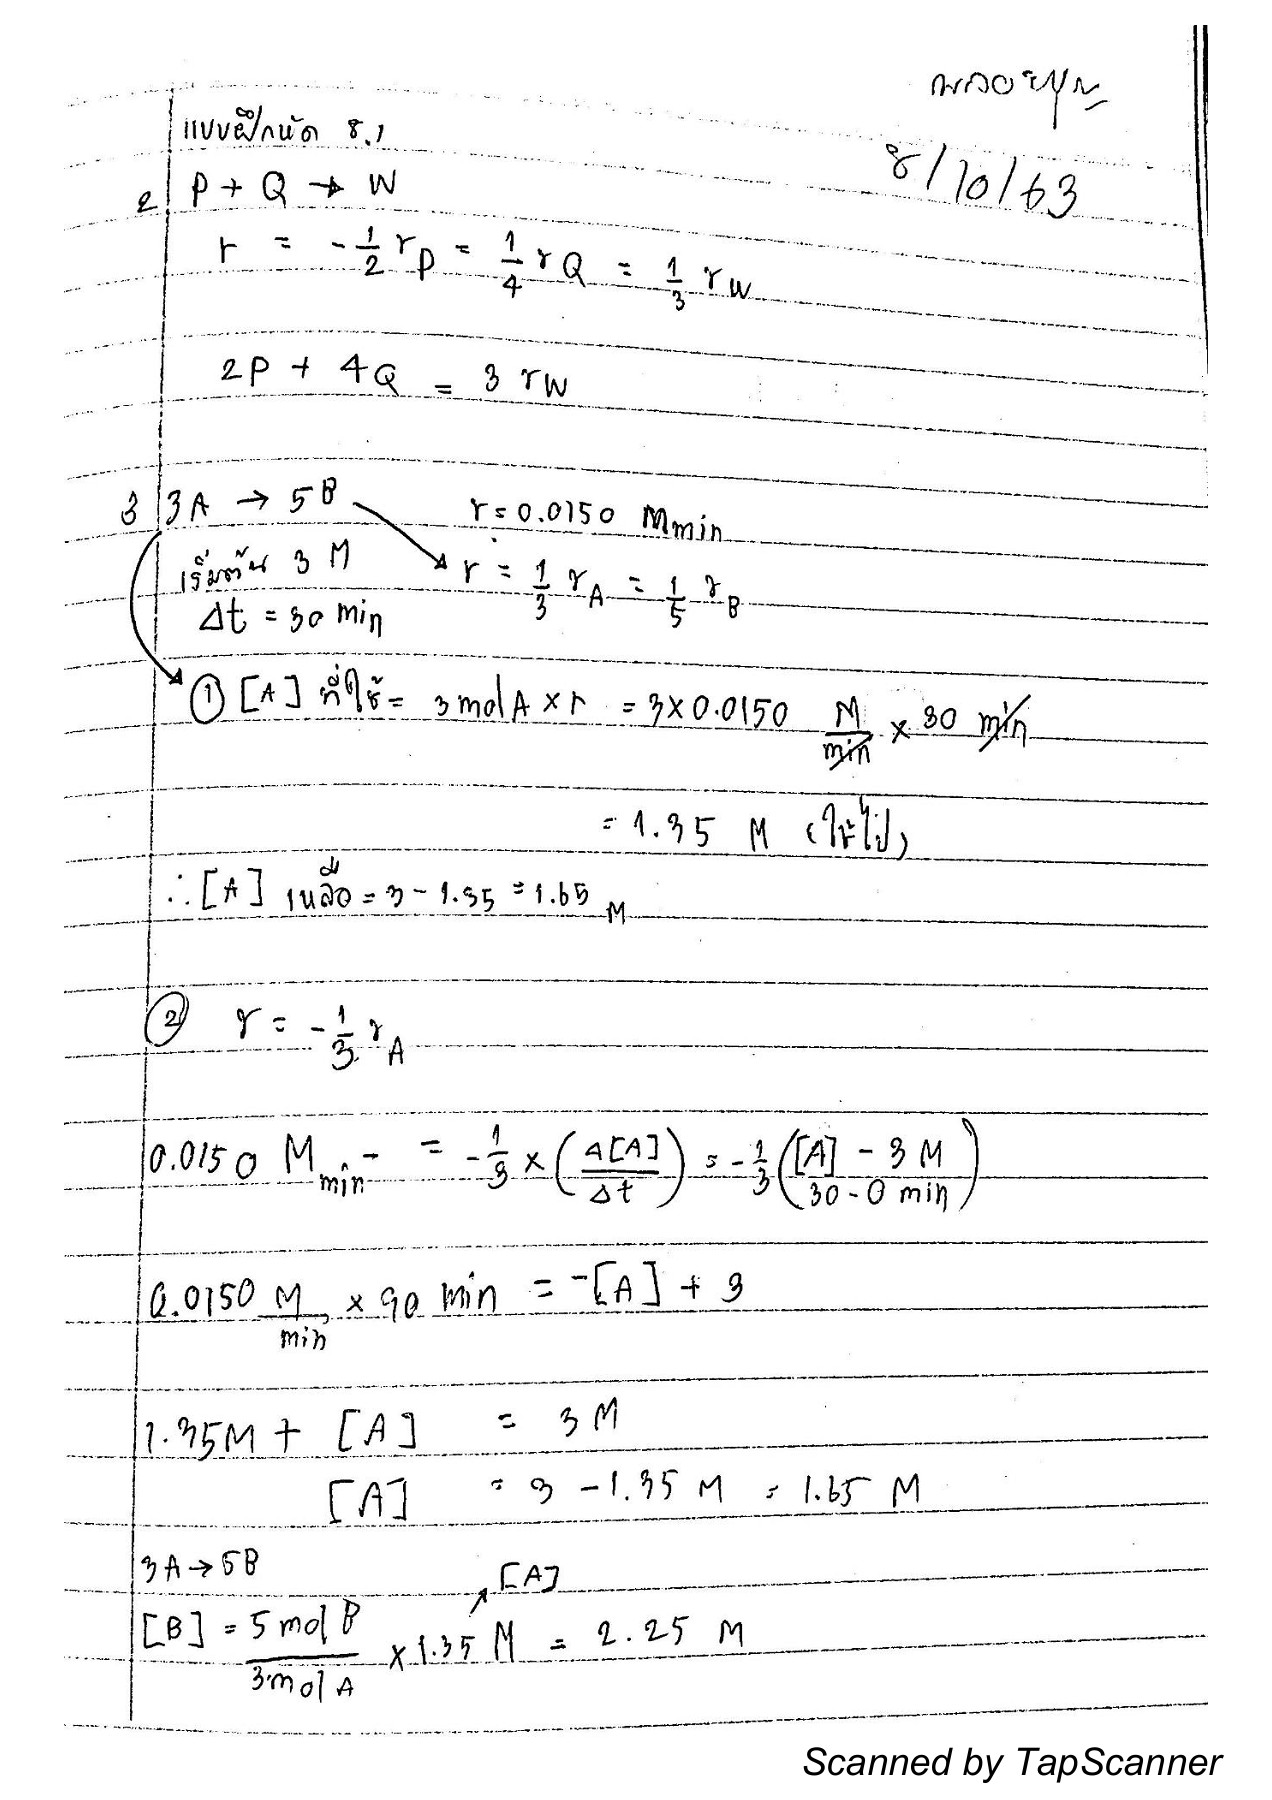 8/10/63
แบบฝึกหัด 8.1
2 P + Q → W
r = -1/2 rP = 1/4 rQ = 1/3 rW
2P + 4Q = 3 rW
3 3A → 5B r = 0.0150 M min
เริ่มต้น 3 M r = 1/3 rA = 1/5 rB
Δt = 30 min
① [A] ที่ใช้ = 3 mol A × r = 3 × 0.0150 M/min × 30 min
= 1.35 M (ใช้ไป)
∴ [A] เหลือ = 3 - 1.35 = 1.65 M
② r = -1/3 rA
0.0150 M min- = -1/3 × (Δ[A]/Δt) = -1/3 ([A] - 3 M / 30 - 0 min)
0.0150 M/min × 90 min = -[A] + 3
1.35M + [A] = 3 M
[A] = 3 - 1.35 M = 1.65 M
3A → 5B
[A]
[B] = 5 mol B / 3 mol A × 1.35 M = 2.25 M
Scanned by TapScanner